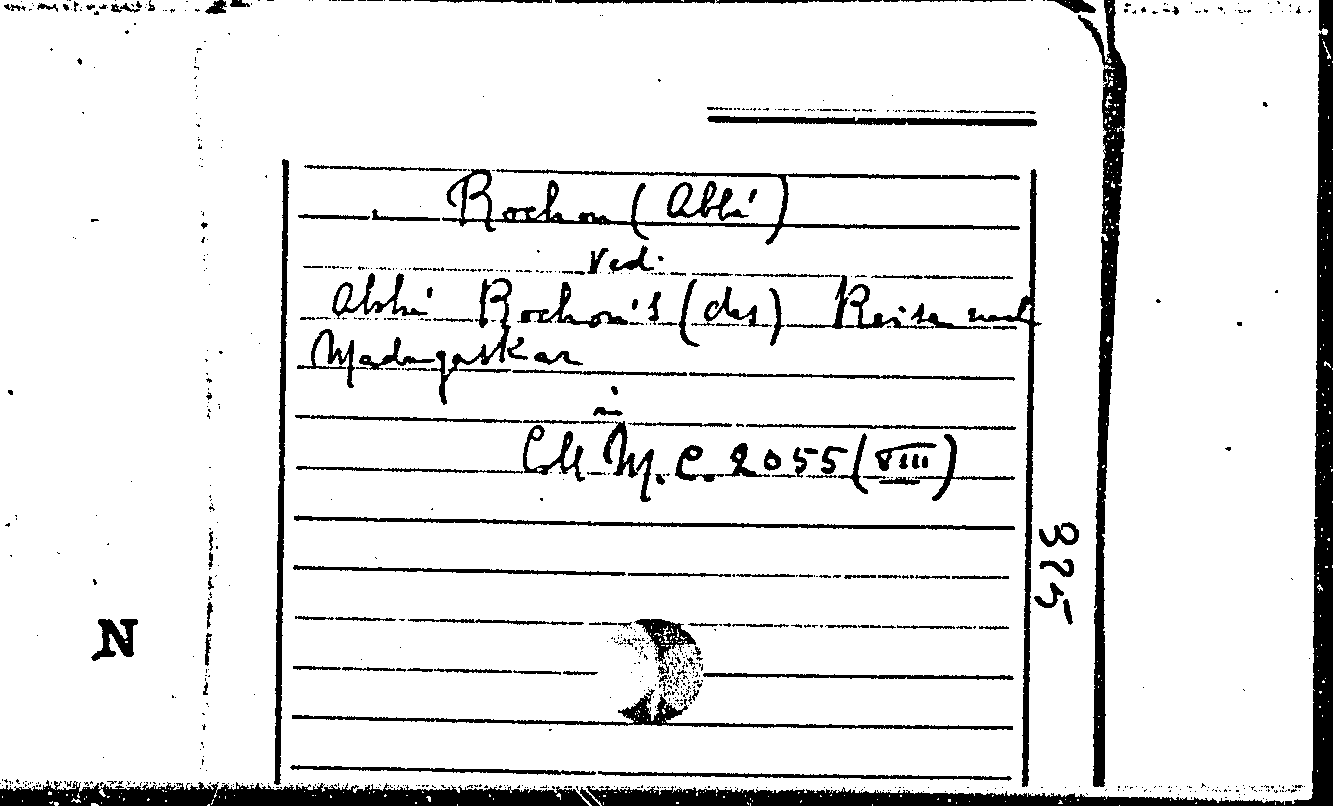 Rochon (Abbé)
Ved.
Abbé Rochon's (des) Reise nach
Madagaskar
in
Coll M. C. 2055 (VIII)
325
N